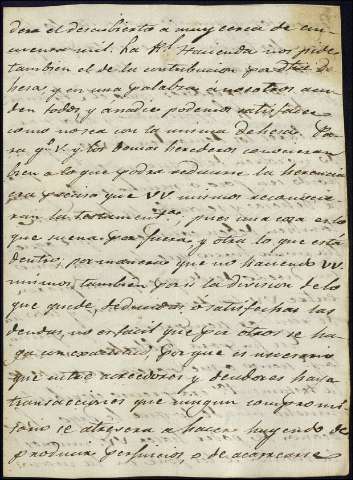 dera el descubierto a muy cerca de cin
cuenta mil. La Rl. Hacienda nos pide
tambien el de la contribucion por dha. de
hesa, y en una palabra a nosotros acu
den todos, y a nadie podemos satisfacer
como no sea con la misma dehesa. Pa
ra qe. V. y los demas herederos conocieran
bien a lo que podra reducirse la herencia
era preciso que VV. mismos reconocie
ran la testamenta., pues una cosa es lo
que suena por fuera, y otra lo que está
dentro, por manera que no haciendo VV.
mismos, tambien por si la division de lo
que quede, deducidas o satisfechas las
deudas, no es facil que por otros se ha
ga con exactitud, porque es necesario
que entre acreedores y deudores haya
transacciones que ningun compromi
sario se atrevera a hacer huyendo de
producir perjuicios, o de acarrearse